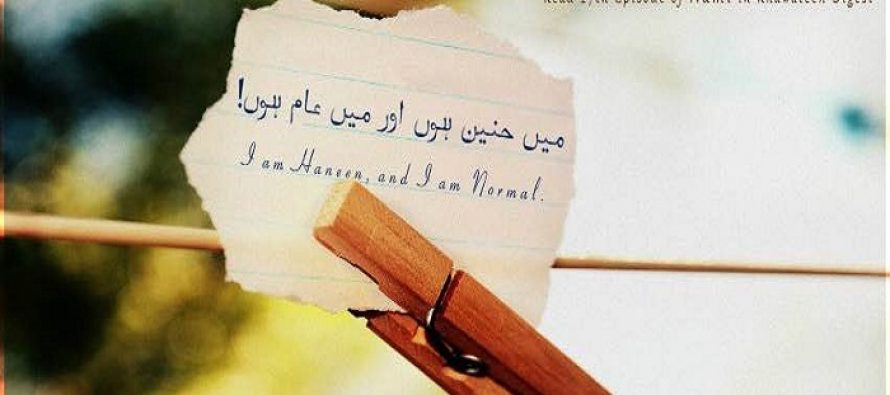 Read 17th Episode of Naml in Khawateen Digest
میں حنین ہوں اور میں عام ہوں!
I am Haneen, and I am Normal.